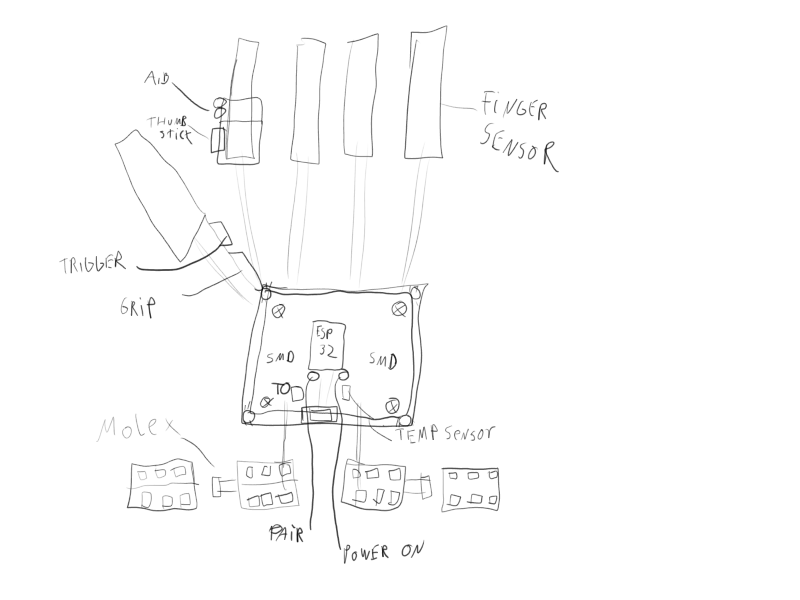 A,B
THUMB
STICK
FINGER
SENSOR
TRIGGER
GRIP
ESP
32
SMD
SMD
TO
MOLEX
TEMP SENSOR
PAIR
POWER ON